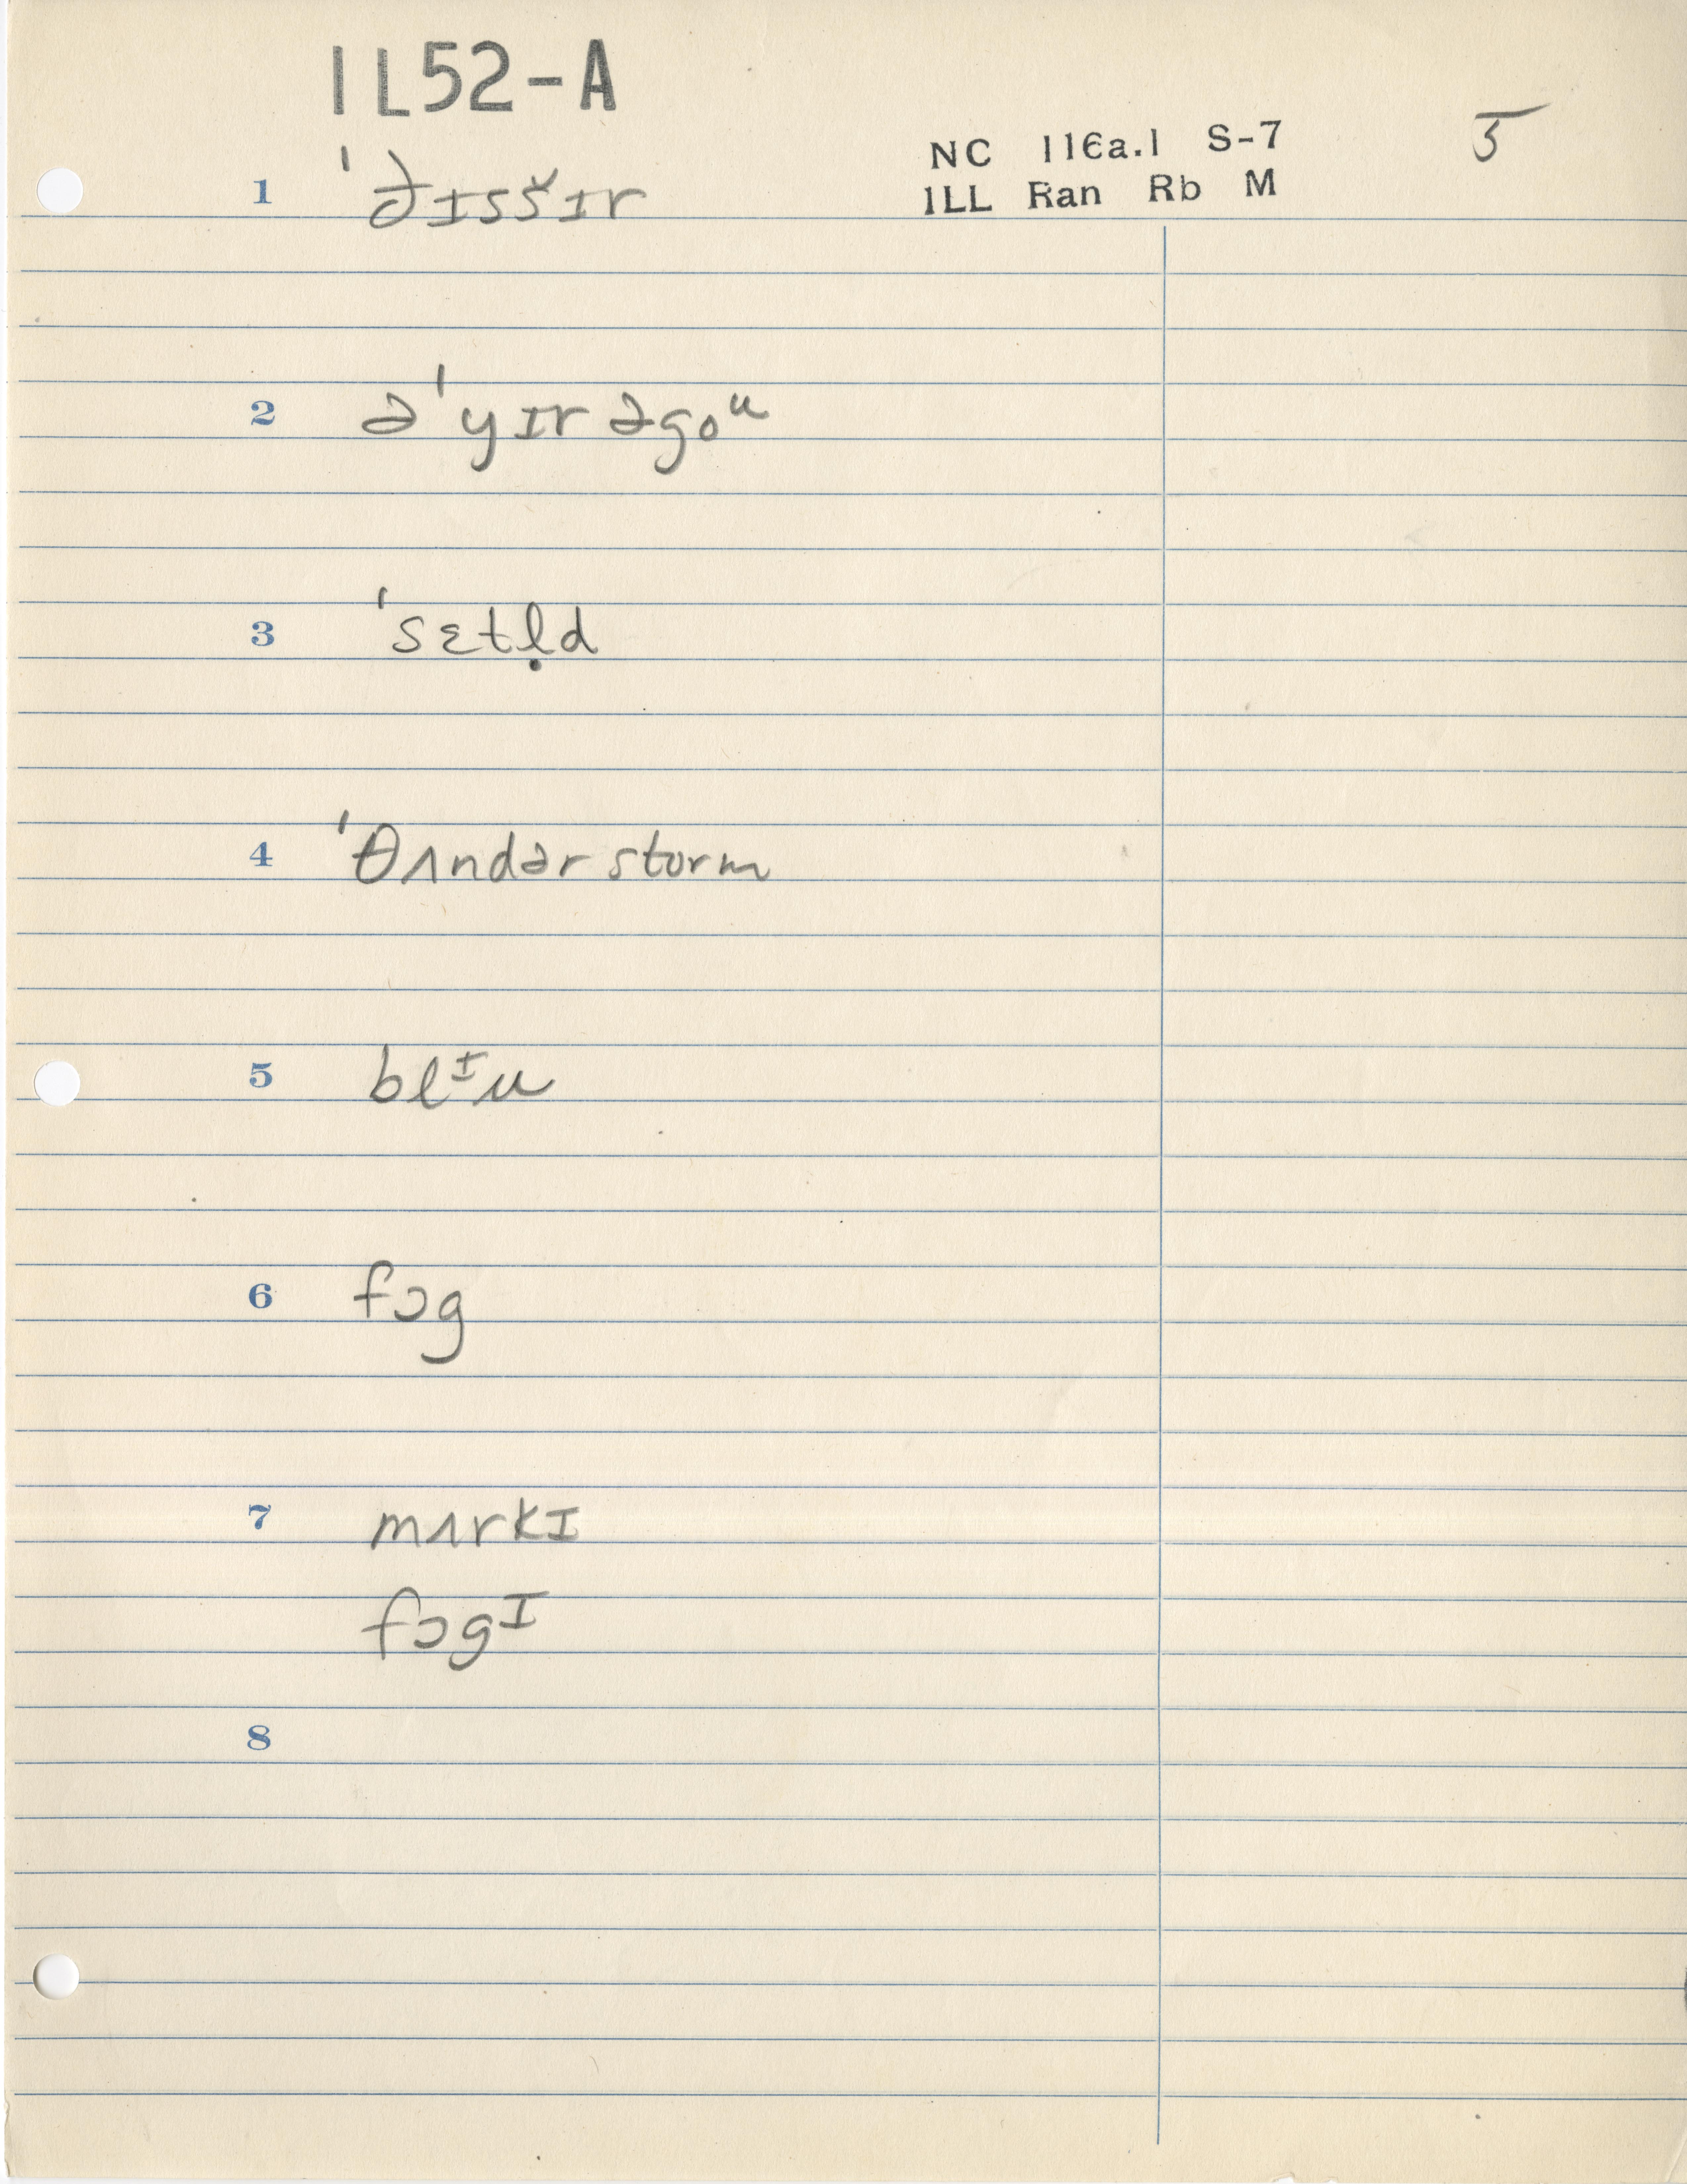 IL52-A
NC 116a.1 S-7
5
ILL Ran Rb M
1 'ðɪsšɪr
2 ə'yɪr əgoᵘ
3 'sɛtl̩d
4 'θʌndər storm
5 blᶦu
6 fɔg
7 mʌrkɪ
fɔgɪ
8